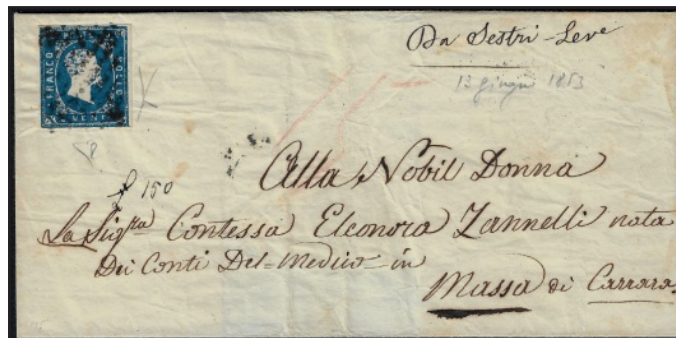 FRANCO
POSTO
VENTI
Da Sestri-Leve
13 giugno 1853
150
Alla Nobil Donna
La Sigra Contessa Eleonora Zannelli nata
Dei Conti Del-Medico-in
Massa di Carrara